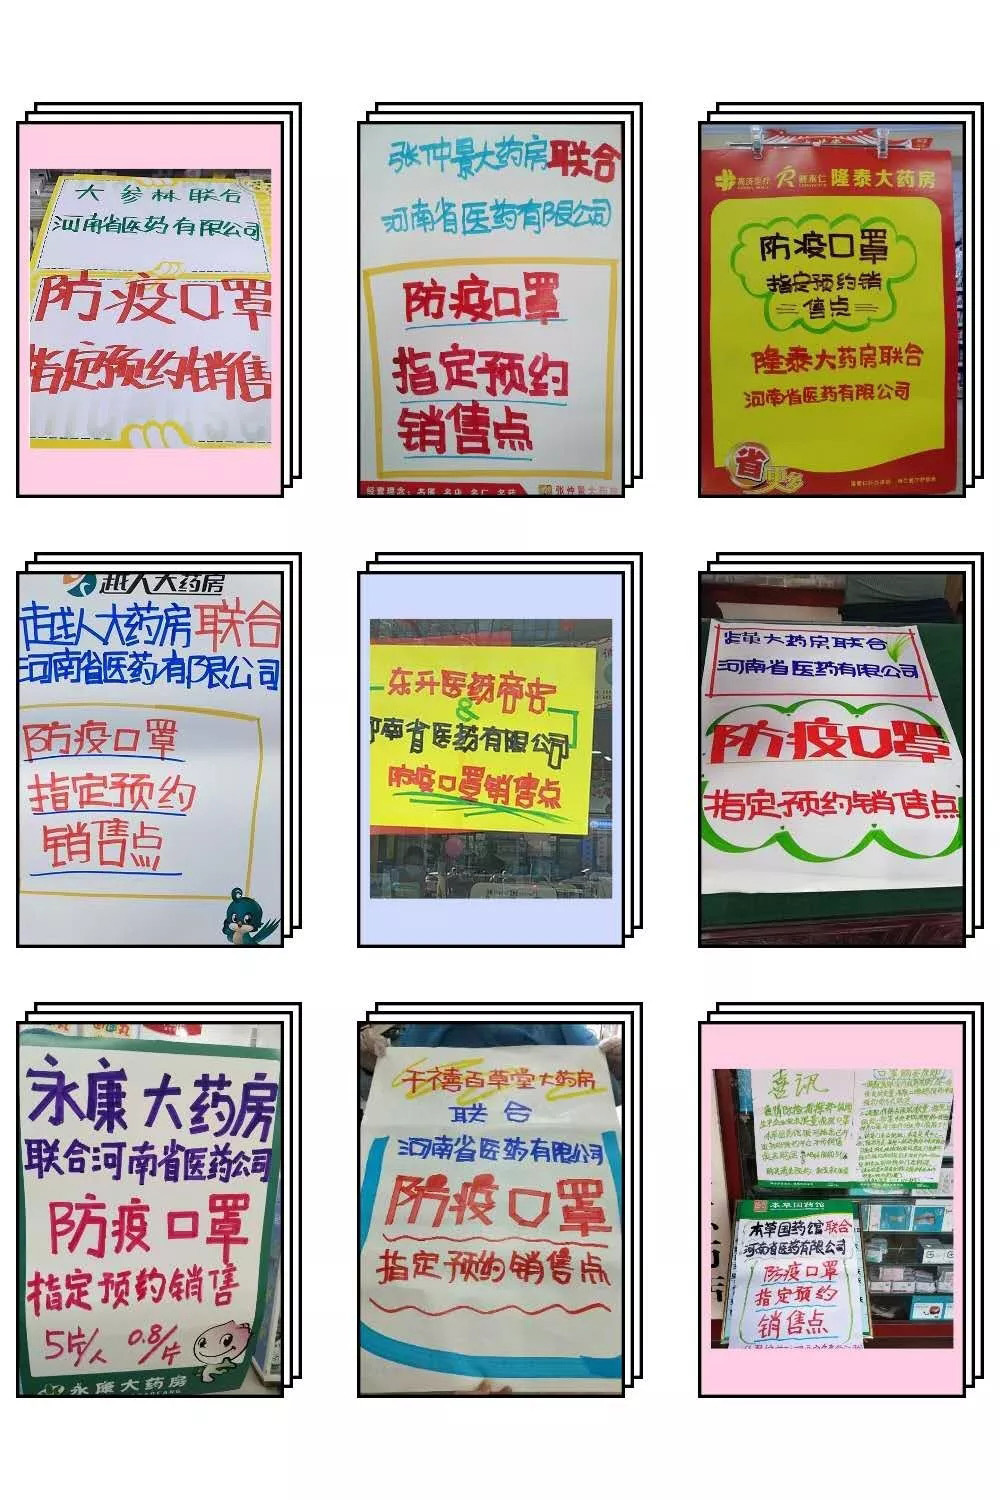 大参林联合
河南省医药有限公司
防疫口罩
指定预约销售
张仲景大药房联合
河南省医药有限公司
防疫口罩
指定预约
销售点
张仲景大药房
隆泰大药房
防疫口罩
指定预约销
售点
隆泰大药房联合
河南省医药有限公司
省
越人大药房
越人大药房联合
河南省医药有限公司
防疫口罩
指定预约
销售点
东升医药
&
河南省医药有限公司
防疫口罩销售点
大药房联合
河南省医药有限公司
防疫口罩
指定预约销售点
永康大药房
联合河南省医药公司
防疫口罩
指定预约销售
5片/人 0.8/片
永康大药房
千禧百草堂大药房
联合
河南省医药有限公司
防疫口罩
指定预约销售点
喜讯
本草国药馆
本草国药馆联合
河南省医药有限公司
防疫口罩
指定预约
销售点